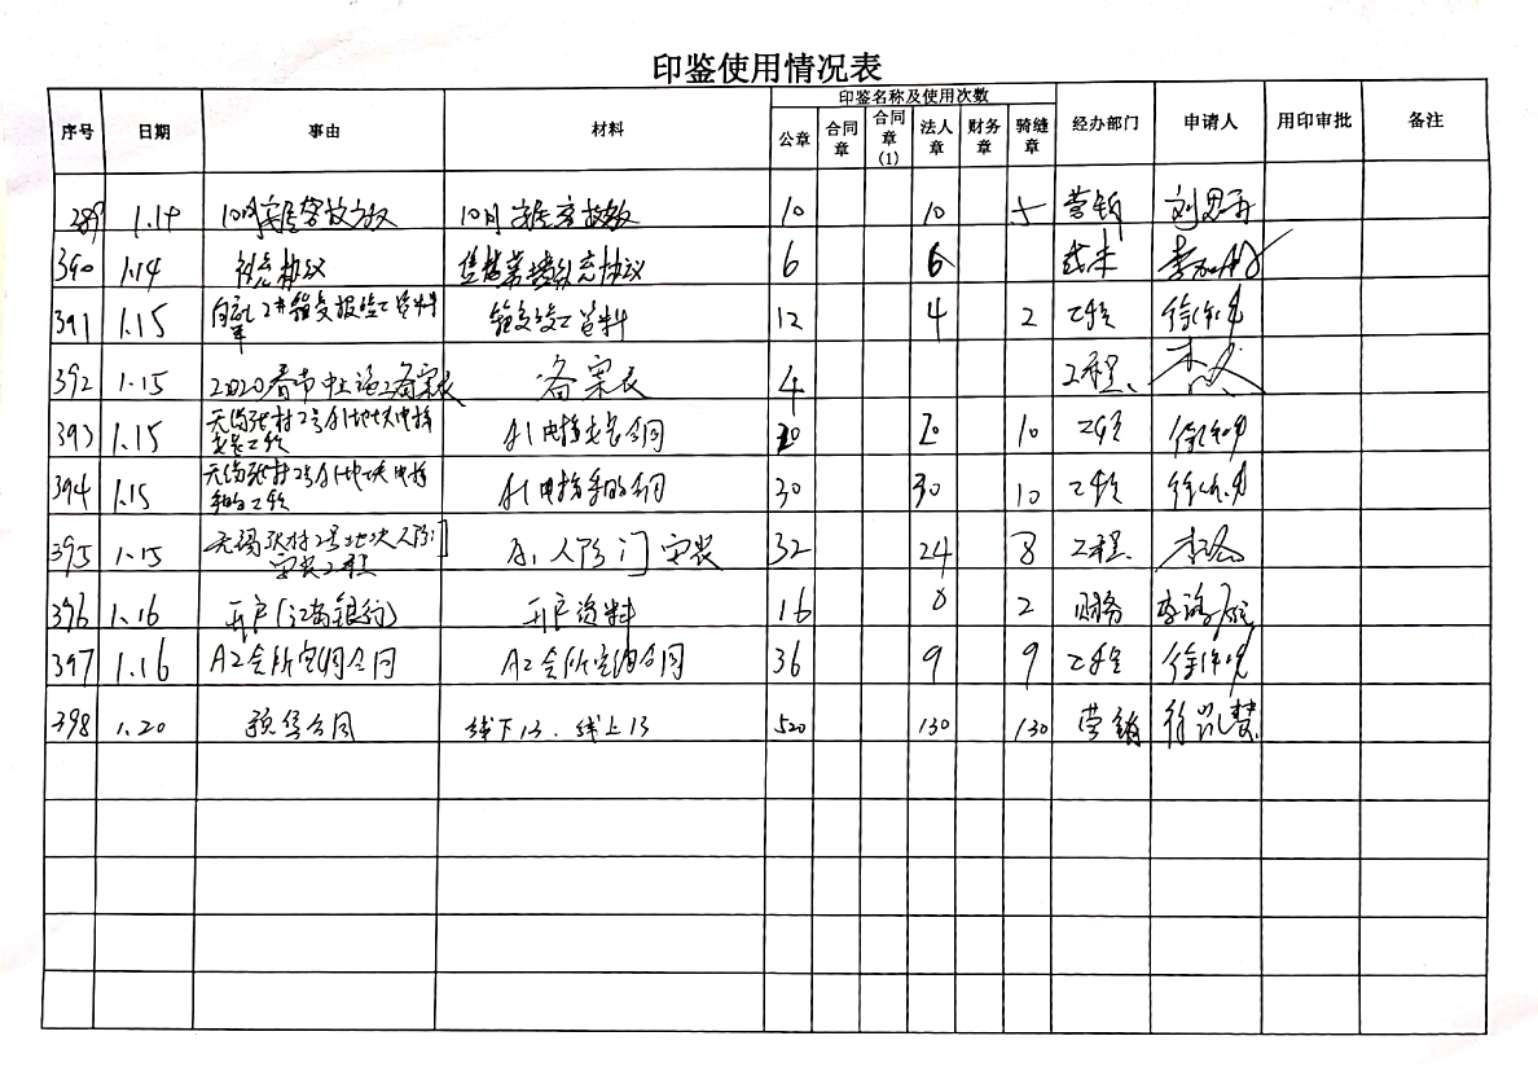 印鉴使用情况表
序号 日期 事由 材料 印鉴名称及使用次数 经办部门 申请人 用印审批 备注
公章 合同章 合同章(1) 法人章 财务章 骑缝章
289 1.14 10月 10月 10 10 5 营销 刘
390 1.14 补充协议 补充协议 6 6 成本 李
391 1.15 2# 资料 资料 12 4 2 工程 徐
392 1.15 2020春节中止施工备案表 备案表 4 工程
393 1.15 无锡张村2号A1地块电梯安装工程 A1电梯安装合同 20 20 10 工程 徐
394 1.15 无锡张村2号A1地块电梯采购工程 A1电梯采购合同 30 30 10 工程 徐
395 1.15 无锡张村2号地块人防门安装工程 A1人防门安装 32 24 8 工程 李
396 1.16 开户(江南银行) 开户资料 16 8 2 财务 李
397 1.16 A2会所 合同 A2会所 合同 36 9 9 工程 徐
398 1.20 预售合同 线下13、线上13 520 130 130 营销 徐凯慧